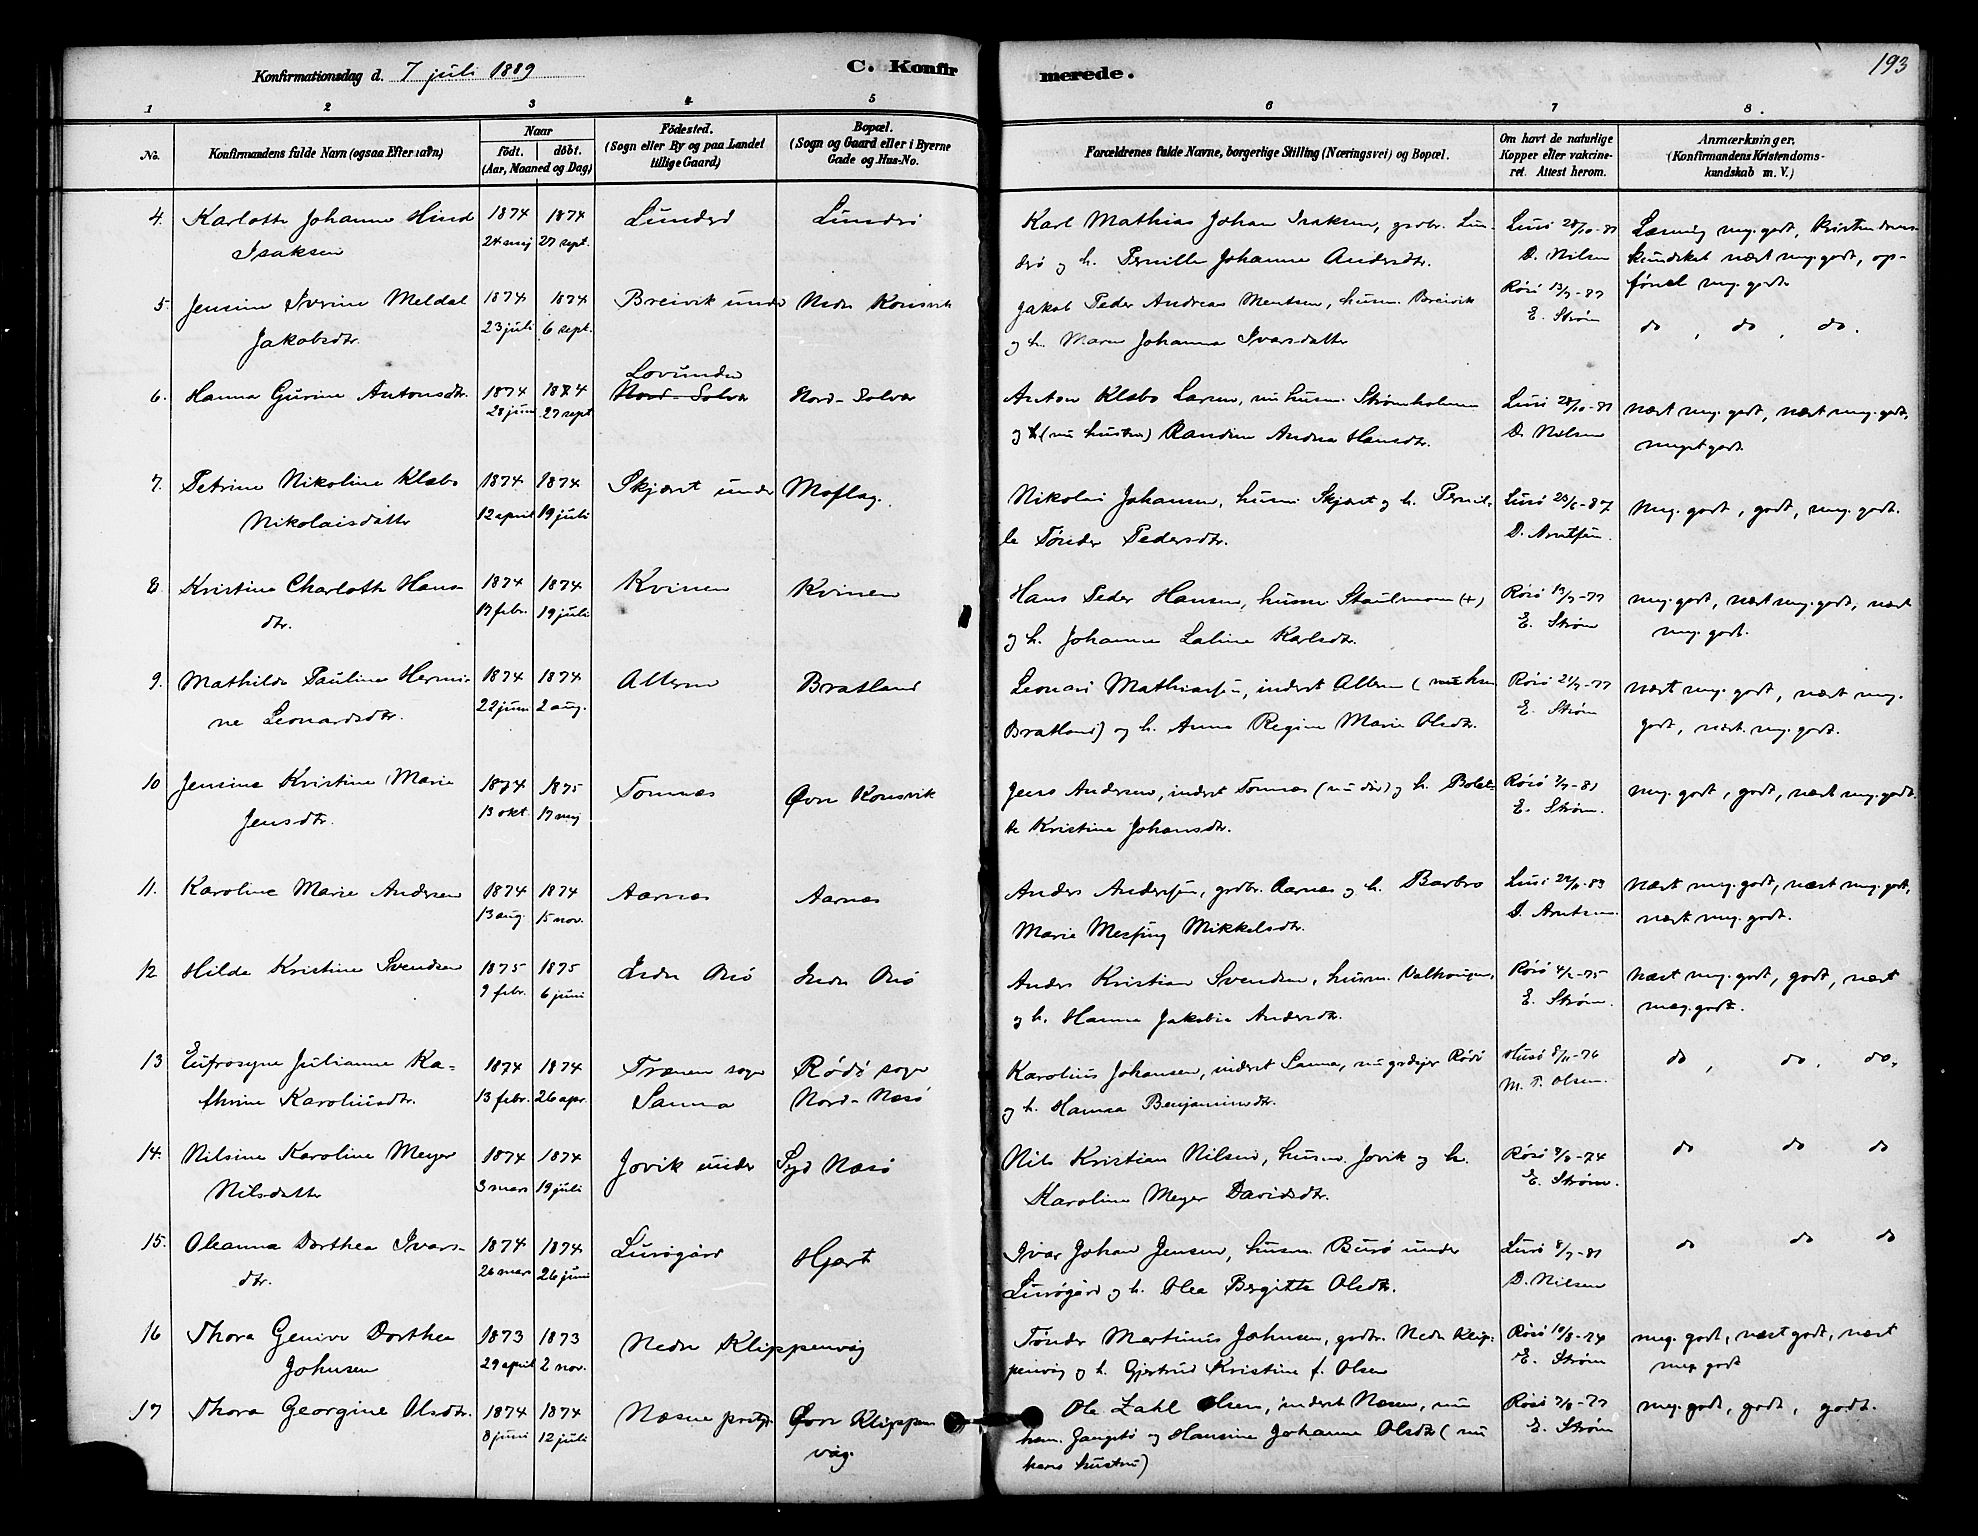 Konfirmationsdag d. 7 juli 1889
C. Konfirmerede.
193
1 2 3 4 5 6 7 8.
No.
Konfirmandens fulde Navn (ogsaa Efternavn)
Naar
født. døbt.
(Aar, Maaned og Dag)
Fødested.
(Sogn eller By og paa Landet
tillige Gaard)
Bopæl.
(Sogn og Gaard eller i Byerne
Gade og Hus-No.
Forældrenes fulde Navne, borgerlige Stilling (Næringsvei) og Bopæl.
Om havt de naturlige
Kopper eller vakcine-
ret. Attest herom.
Anmærkninger.
(Konfirmandens Kristendoms-
kundskab m. V.)
4. Karlotte Johanne Hind
Isaksen
1874 1874
24 maj 27 sept.
Lunderö Lunderö
Karl Mathias Johan Isaksen, grdbr. Lun-
derö og h. Pernille Johanne Andersdtr.
D. Nilsen
Læsning meg. godt, Kristendoms-
kundskab nært meg. godt, op-
førsel meg. godt.
5. Jensine Iverine Meldal
Jakobsdtr.
1874 1874
23 juli 6 sept.
Breivik under Nedre Konsvik
Jakob Peder Andreas Mentsen, husm. Breivik
og h. Maren Johanna Ivarsdatter
E. Strøm
do , do , do.
6. Hanna Gurine Antonsdtr.
1874 1874
28 juni 27 sept
Lovunden
Nord-Solvær Nord-Solvær
Anton Klæbo Larsen, nu husm. Strømholmen
og h (nu hustru) Randine Andrea Hansdtr.
D. Nilsen
nært meg. godt, nært meg. godt,
meget godt.
7. Petrine Nikoline Klæbo
Nikolaisdatter
1874 1874
12 april 19 juli
Skjæret under Moflag.
Nikolai Johansen, husm. Skjæret og h. Pernil-
le Tønder Pedersdtr.
D. Arntsen.
Meg. godt, godt, meg. godt.
8. Kristine Charlotte Hans-
dtr.
1874 1874
17 febr. 19 juli
Kvinen Kvinen
Hans Peder Hansen, husm. Staulmoen (+)
og h. Johanna Laline Karlsdtr.
E. Strøm
meg. godt, nært meg. godt, nært
meg. godt.
9. Mathilde Pauline Hermi-
ne Leonardsdtr.
1874 1874
22 juni 2 aug.
Alteren Bratland
Leonard Mathiassen, inderst Alteren (nu hsm
Bratland) og h. Anna Regine Marie Olsdtr.
E. Strøm
nært meg. godt, nært meg.
godt, nært meg. godt.
10 Jensine Kristine Marie
Jensdtr.
1874 1875
13 okt. 17 maj
Tonnes Øvre Konsvik
Jens Andersen, inderst Tonnes (nu død) og h. Bolet-
te Kristine Johansdtr.
E. Strøm.
meg. godt, godt, nært meg. godt.
11. Karoline Marie Andersen
1874 1874
13 aug. 15 nov.
Aarnes Aarnes
Anders Andersen, grdbr. Aarnes og h. Barbro
Marie Messing Mikkelsdtr.
D. Arntsen.
nært meg. godt, nært meg. godt,
nært meg. godt.
12 Hilda Kristine Svendsen
1875 1875
9 febr. 6 juni
Indre Onø Indre Onø
Anders Kristian Svendsen, husm.
og h. Hanna Jakobia Andersdtr.
E. Strøm.
Nært meg. godt, godt, nært
meg. godt.
13 Eufrosyne Julianne Ka-
thrine Karoliusdtr.
1874 1874
13 febr. 26 apr.
Trænen sogn
Sanna
Rødø sogn
Nord-Nesø
Karolius Johansen, inderst Sanna, nu grdejer Rödö
og h. Hanna Benjaminsdtr.
M. P. Olsen.
do , do , do.
14. Nilsine Karoline Meyer
Nilsdatter
1874 1874
3 mars 19 juli
Jovik under Syd Nesø
Nils Kristian Nilsen, husm. Jovik og h.
Karoline Meyer Davidsdtr.
E. Strøm.
do do do
15. Oleanna Dorthea Ivars-
dtr.
1874 1874
26 mars 26 juni
Lurøgård Hjart
Ivar Johan Jensen, husm. Burø under
Lurøgård og h. Olea Birgitte Olsdtr.
D. Nilsen
do do do
16 Thora Genive Dorthea
Johnsen
1873 1873
29 april 2 nov.
Nedre Klippenvåg
Tønder Martinus Johnsen, grdbr. Nedre Klip-
penvåg og h. Gjertrud Kristine f. Olsen
E. Strøm
meg. godt, nært godt, nært
meg. godt
17 Thora Georgine Olsdtr.
1874 1874
8 juni 12 juli
Nesne prstgj. Øvre Klippen
våg.
Ole Zahl Olsen, inderst Nesne, nu
og Hansine Johanne Olsdtr (nu
hans hustru)
E. Strøm
meg. godt, godt, godt.